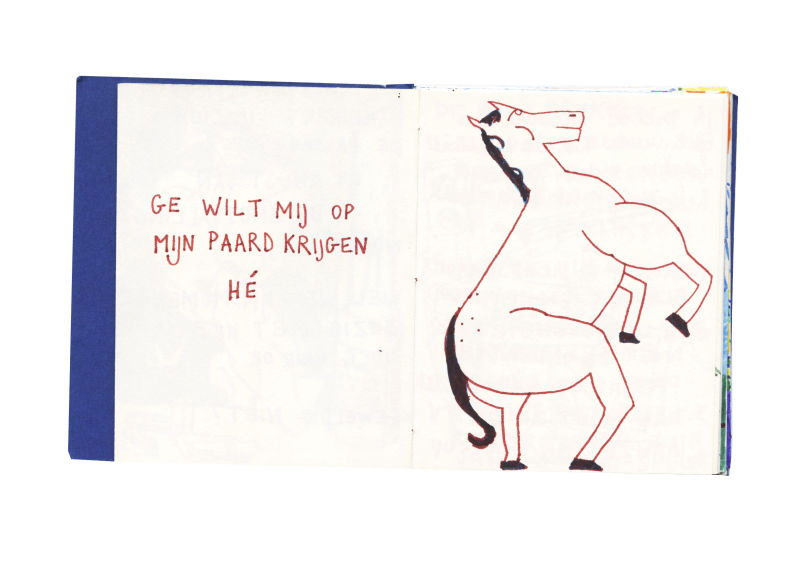 GE WILT MIJ OP
MIJN PAARD KRIJGEN
HÉ